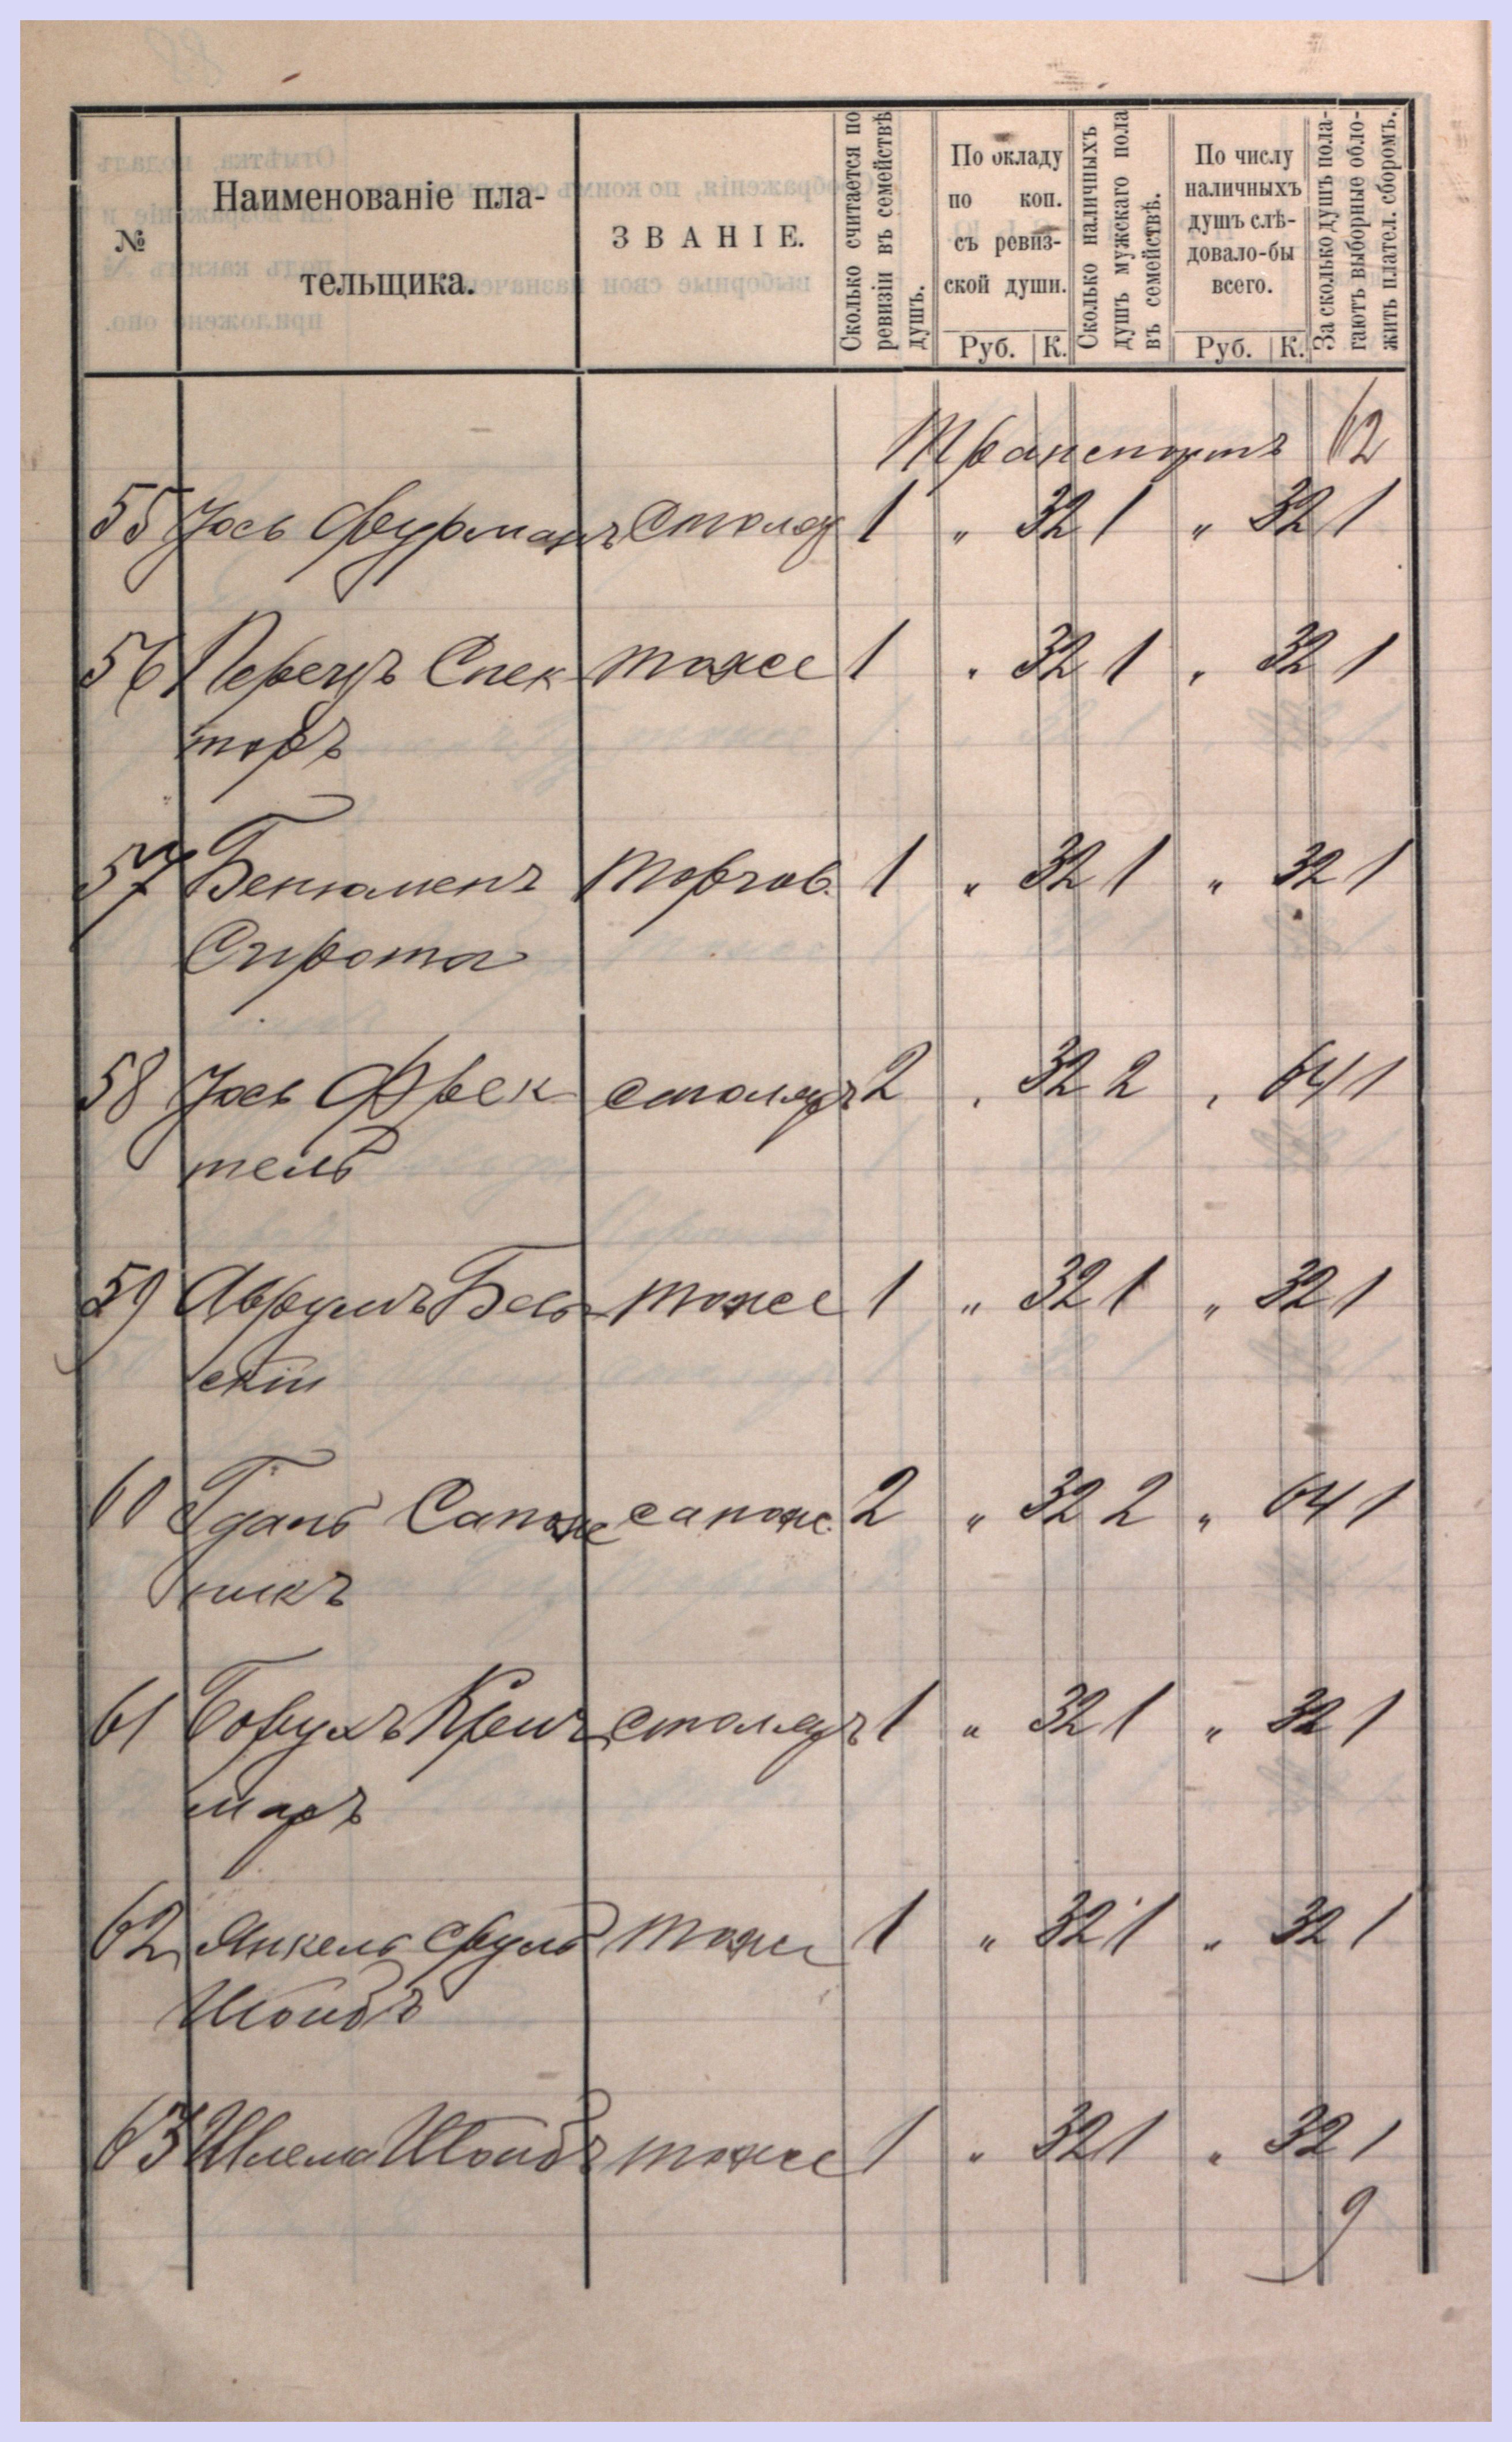 №
Наименованіе пла-
тельщика.
ЗВАНІЕ.
Сколько считается по
ревизіи въ семействѣ
душъ.
По окладу
по коп.
съ ревиз-
ской души.
Руб. К.
Сколько наличныхъ
душъ мужскаго пола
въ семействѣ.
По числу
наличныхъ
душъ слѣ-
довало-бы
всего.
Руб. К.
За сколько душъ пола-
гаютъ выборные обло-
жить плател. сборомъ.
Транспортъ 62
55 Іось Фурманъ столяр 1 „ 32 1 „ 32 1
56 Перецъ Спек тоже 1 „ 32 1 „ 32 1
торъ
57 Бенюменъ торгов. 1 „ 32 1 „ 32 1
Сирота
58 Іось Фрек столяръ 2 „ 32 2 „ 64 1
тель
59 Аврумъ Бель тоже 1 „ 32 1 „ 32 1
скій
60 Гдаль Сапож сапож. 2 „ 32 2 „ 64 1
никъ
61 Борухъ Креч столяръ 1 „ 32 1 „ 32 1
маръ
62 Янкель Сруль тоже 1 „ 32 1 „ 32 1
Штопбъ
63 Шлема тоже 1 „ 32 1 „ 32 1
9